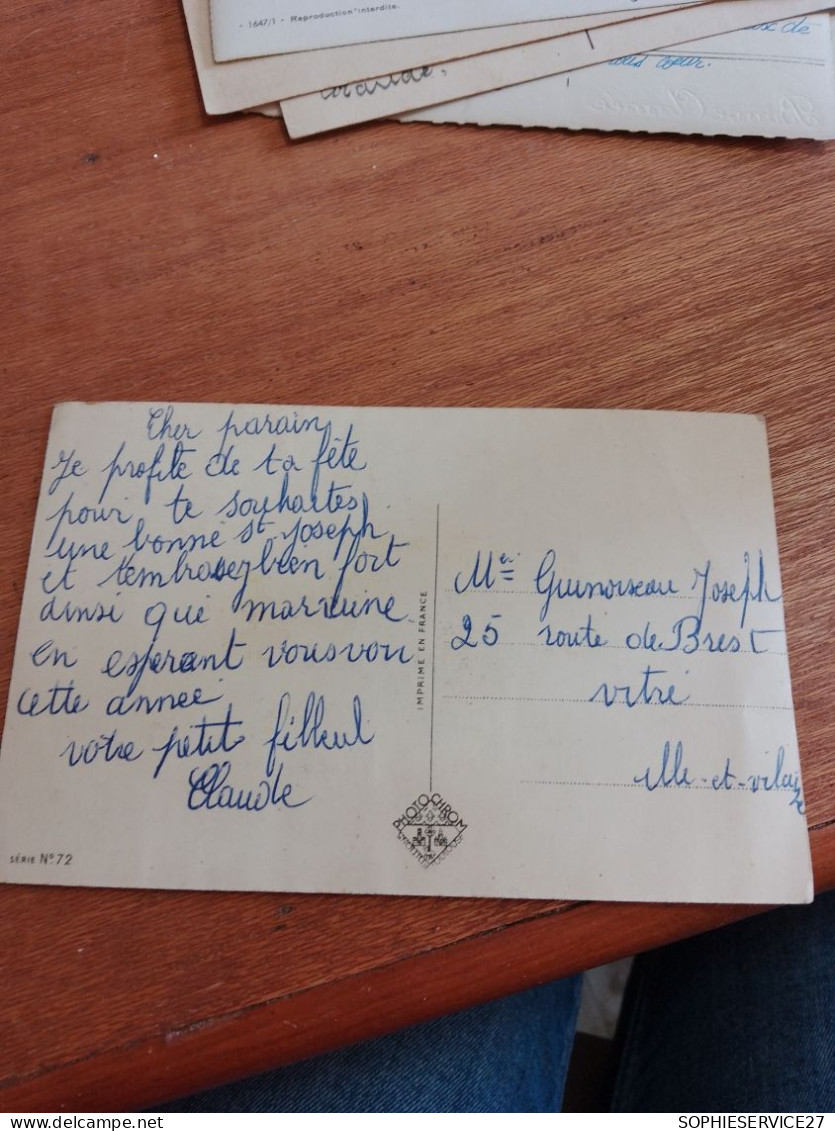 - 1647/1 - Reproduction interdite.
de
cœur.
Cher parain
Je profite de ta fête
pour te souhaites
une bonne st joseph
et t'embrasey bien fort
ainsi que marraine
en esperant vous voir
cette année
votre petit filleul
Claude
SÉRIE N° 72
IMPRIMÉ EN FRANCE
PHOTOCHROM
Guinoiseau Joseph
25 route de Brest
vitré
ille-et-vilaine
SOPHIESERVICE27